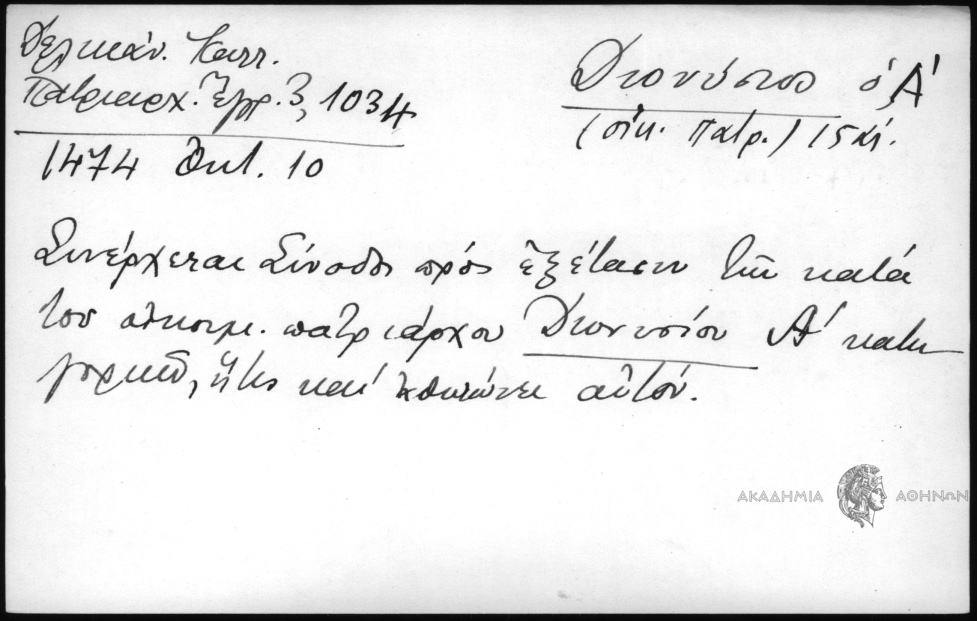 Δελικάν. Καλλ.
Πατριαρχ. Ἔγγρ. 3, 1034
1474 Ὀκτ. 10
Διονύσιος ὁ Α΄
(οἰκ. Πατρ.) 15 αἰ.
Συνέρχεται Σύνοδος πρός ἐξέτασιν τῶν κατά
τοῦ οἰκουμ. πατριάρχου Διονυσίου Α΄ κατη
γοριῶν, ἥτις καί ἀθωώνει αὐτόν.
ΑΚΑΔΗΜΙΑ ΑΘΗΝΩΝ